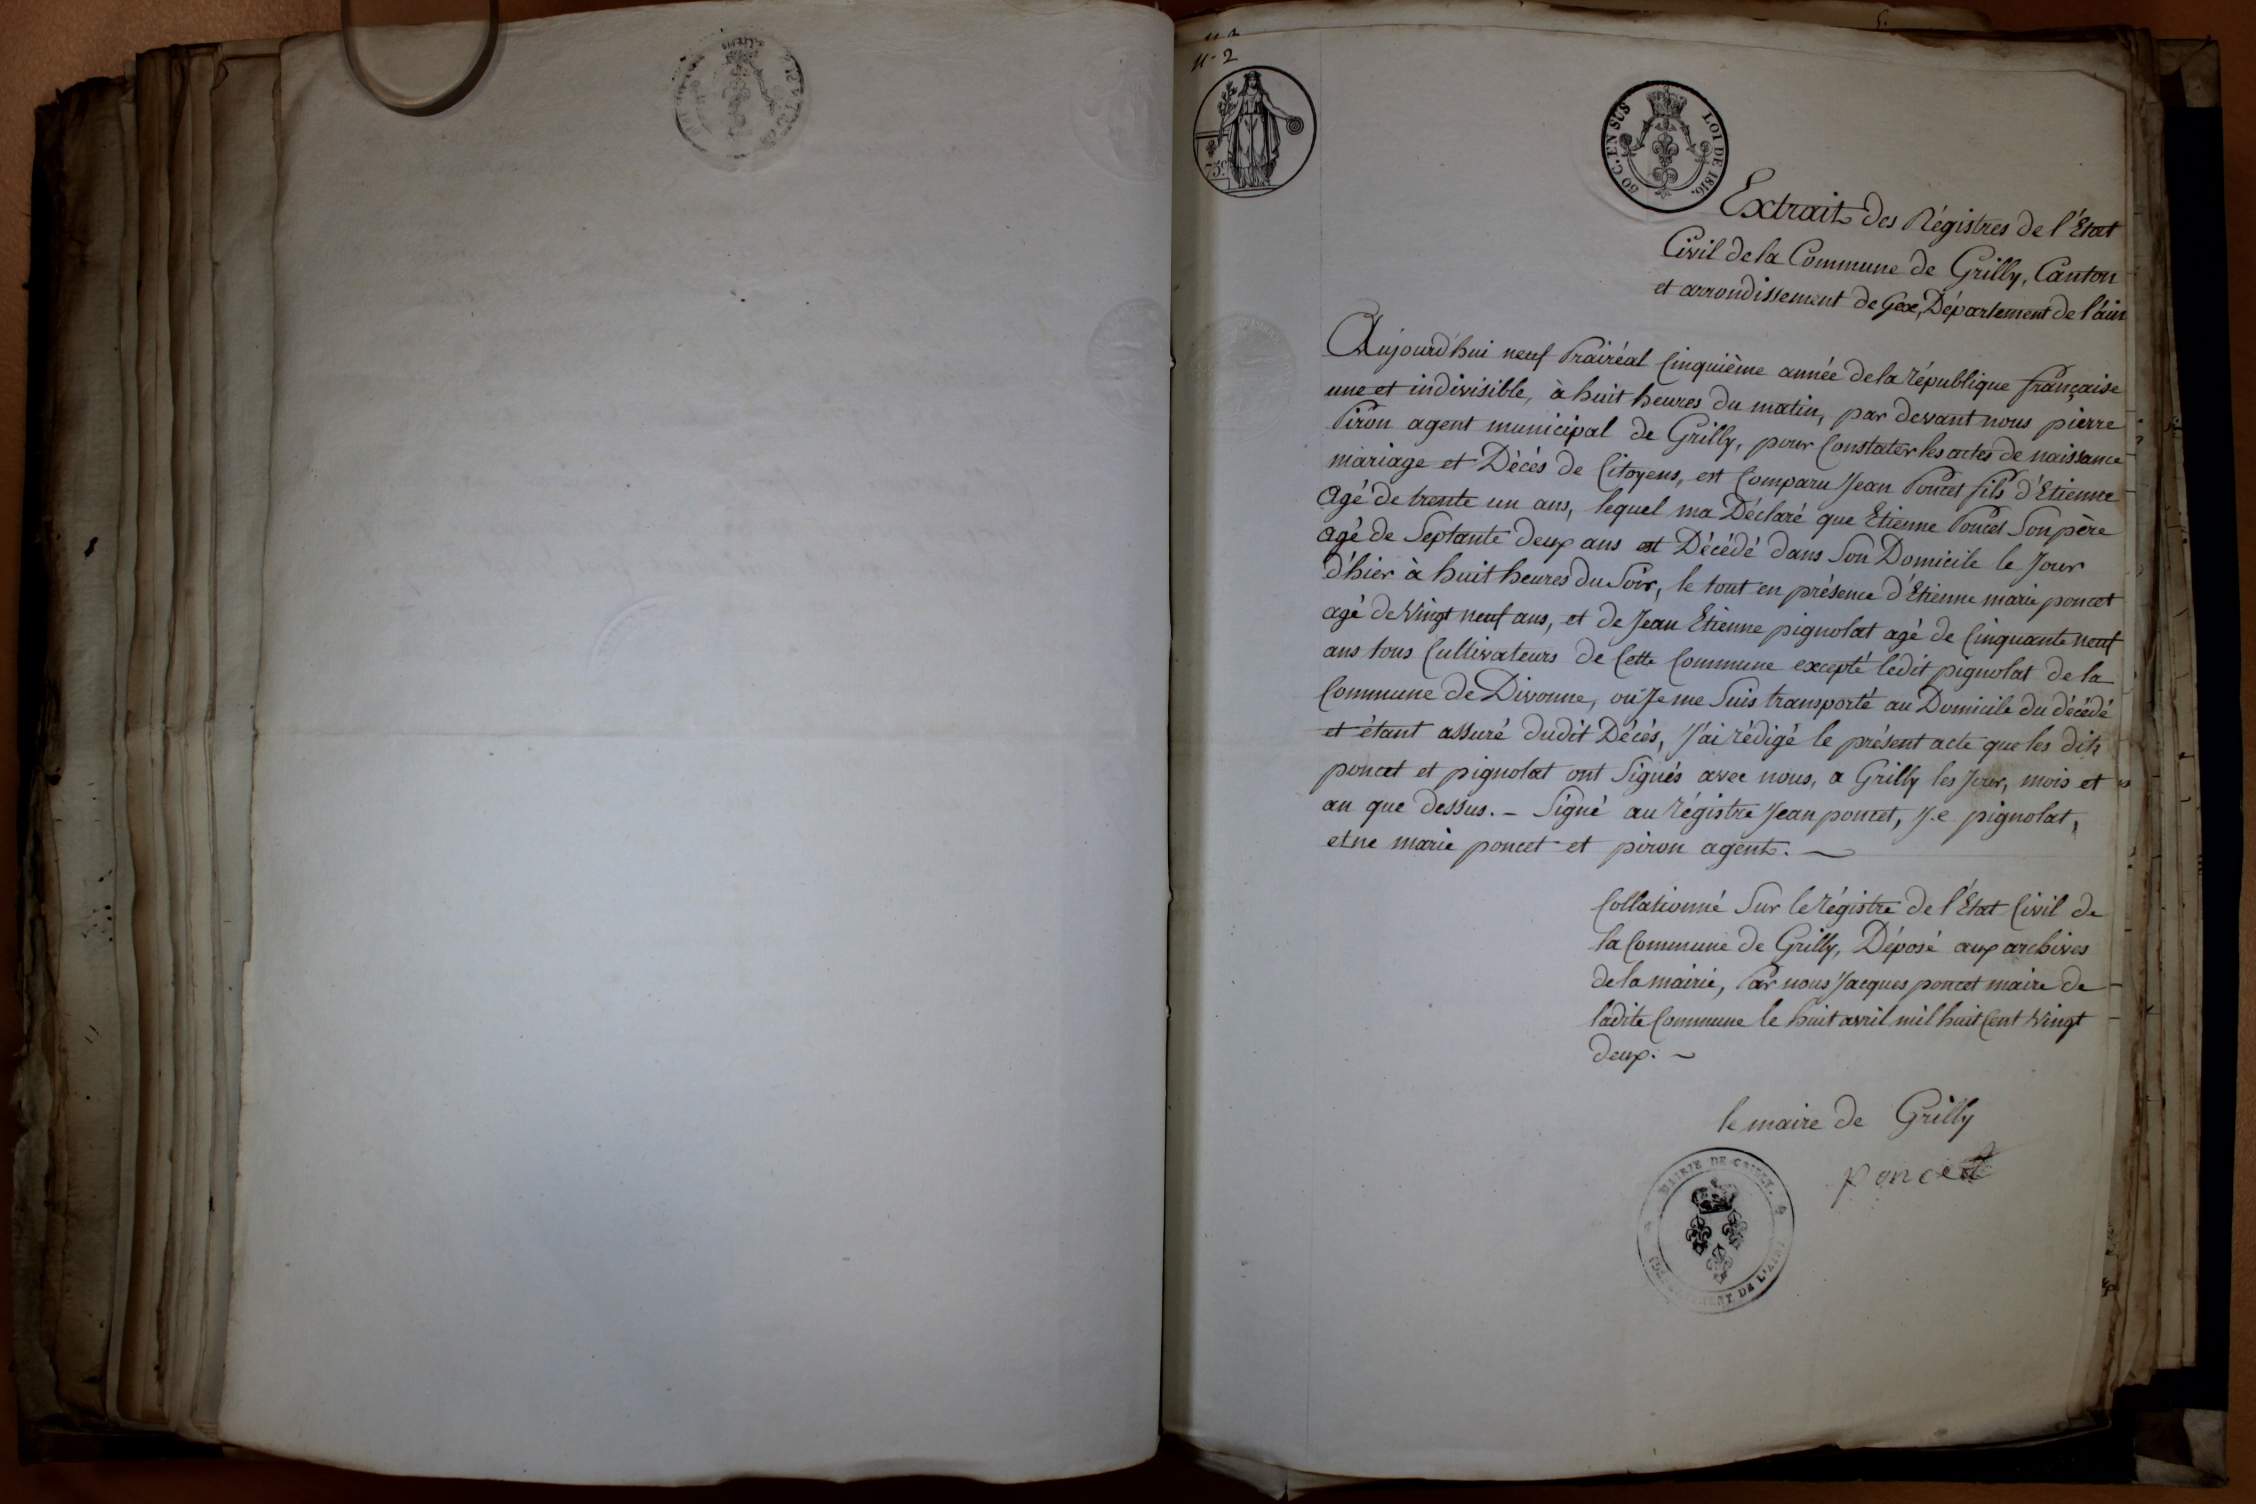 n.o 2
75c.
50 C. EN SUS LOI DE 1816.
Extrait des Régistres de l'Etat
Civil de la Commune de Grilly, Canton
et arrondissement de Gex, Département de l'ain
Aujourd'hui neuf Prairéal Cinquième année de la république française
une et indivisible, à huit heures du matin, par devant nous pierre
Piron agent municipal de Grilly, pour Constater les actes de naissance
mariage et Décès de Citoyens, est Comparu Jean Poncet fils d'Etienne
Agé de trente un ans, lequel ma Déclaré que Etienne Poncet Son père
Agé de Septante deux ans est Décédé dans Son Domicile le Jour
d'hier à huit heures du Soir, le tout en présence d'Etienne marie poncet
agé de Vingt neuf ans, et de Jean Etienne pignolat agé de Cinquante neuf
ans tous Cultivateurs de Cette Commune excepté ledit pignolat de la
Commune de Divonne, où Je me Suis transporté au Domicile du décédé
et étant assuré dudit Décès, J'ai rédigé le présent acte que les dits
poncet et pignolat ont Signés avec nous, a Grilly les Jour, mois et
an que dessus. — Signé au régistre Jean poncet, J.e pignolat,
etne marie poncet et piron agent. —
Collationné Sur le régistre de l'Etat Civil de
la Commune de Grilly, Déposé aux archives
de la mairie, Par nous Jacques poncet maire de
ladite Commune le huit avril mil huit Cent Vingt
deux. —
le maire de Grilly
poncet
MAIRIE DE GRILLY.
DÉPARTEMENT DE L'AIN